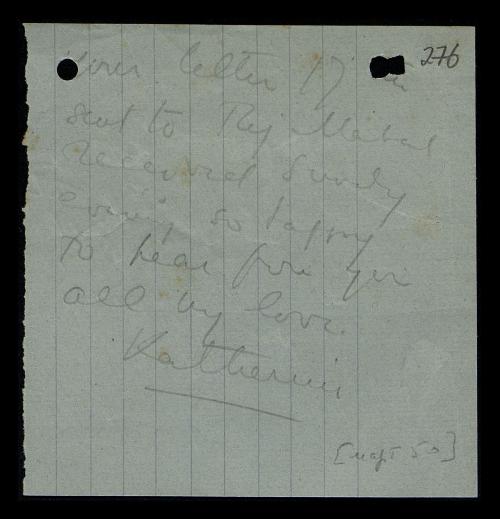 276
Your letter 17
sent to Taj Mahal
received Sunday
evening so happy
to hear from you
all my love.
Katherine